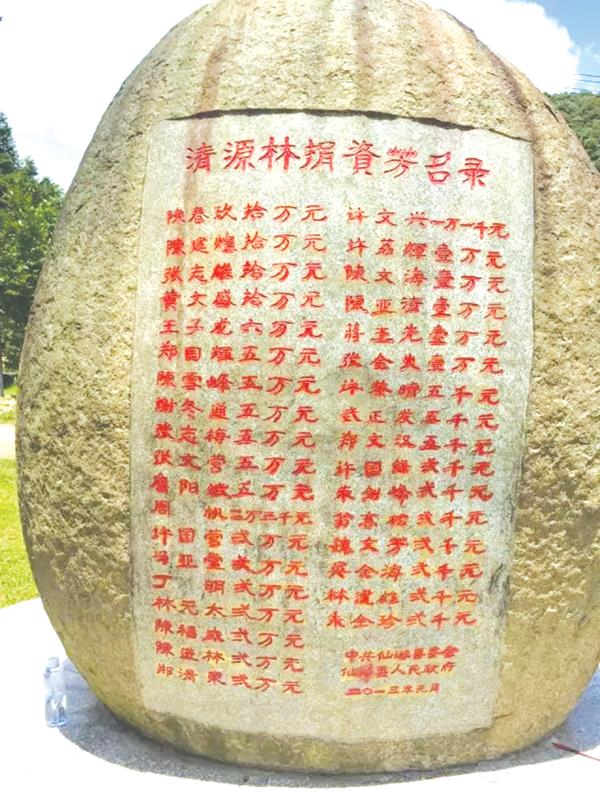 清源林捐資芳名录
陳春玖拾万元
陳建煌拾万元
张志雄拾万元
黄文盛拾万元
王子龙六万元
郑国輝五万元
陳雪峰五万元
謝冬 五万元
蔡志梅五万元
張文营五万元
詹阳斌五万元
周帆二万二千元
許国营弍万元
冯亚堂弍万元
丁明弍万元
林元太弍万元
陳福成弍万元
陳進林弍万元
郑清 弍万元
許文兴一万一千元
許荔輝壹万元
陳文海壹万元
陳亚清壹万元
蔣玉光壹万元
张金炎壹万元
許黎晴五千元
武正发五千元
郑文汉五千元
許国 弍千元
朱剑峰弍千元
翁高 弍千元
魏文芳弍千元
吴金海弍千元
林運雄弍千元
朱金珍弍千元
中共仙游县委会
仙游县人民政府
二〇一三年元月